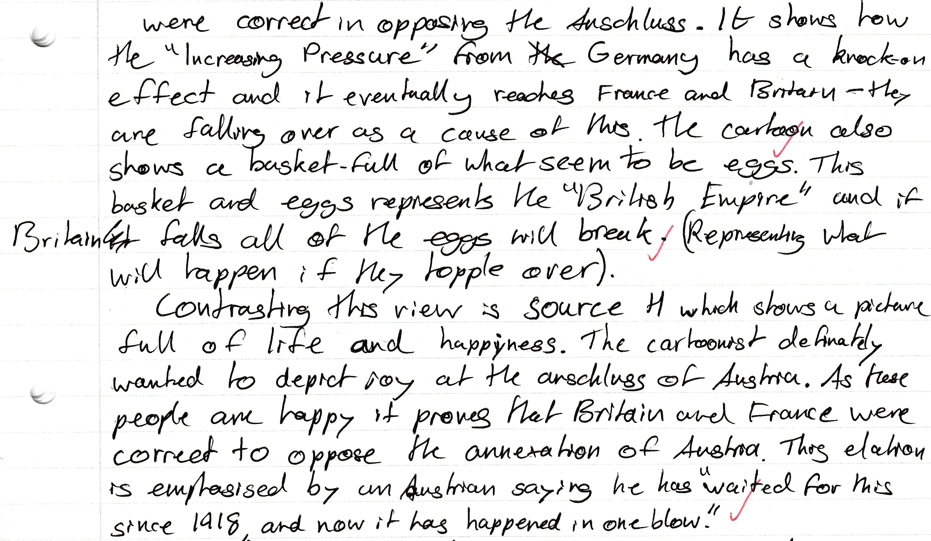 were correct in opposing the Anschluss. It shows how
the "Increasing Pressure" from the Germany has a knock-on
effect and it eventually reaches France and Britain - they
are falling over as a cause of this. The cartoon also
shows a basket-full of what seem to be eggs. This
basket and eggs represents the "British Empire" and if
Britain it falls all of the eggs will break. (Representing what
will happen if they topple over).
Contrasting this view is source H which shows a picture
full of life and happiness. The cartoonist definately
wanted to depict joy at the anschluss of Austria. As these
people are happy it proves that Britain and France were
correct to oppose the annexation of Austria. This elation
is emphasised by an Austrian saying he has "waited for this
since 1918, and now it has happened in one blow."